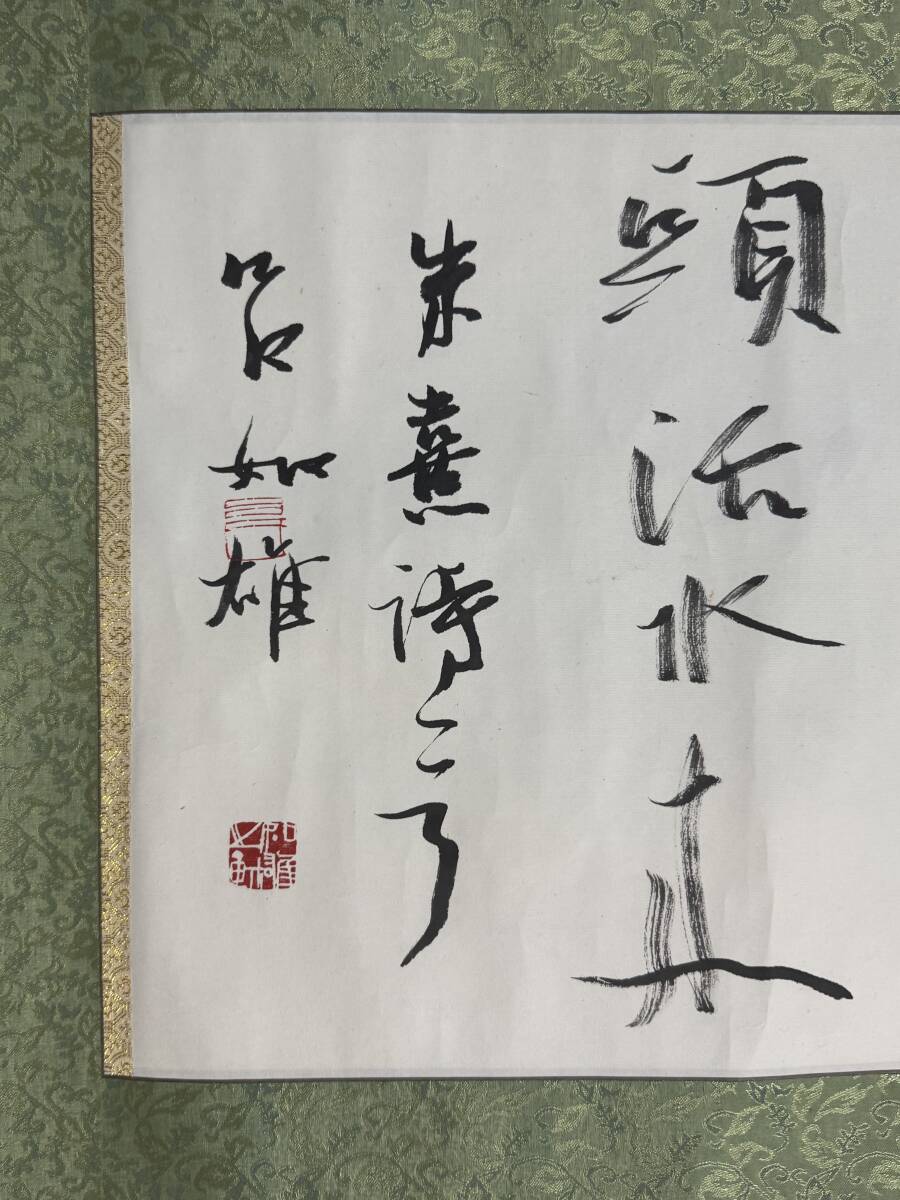 頭活水来
朱熹詩句
吕如雄